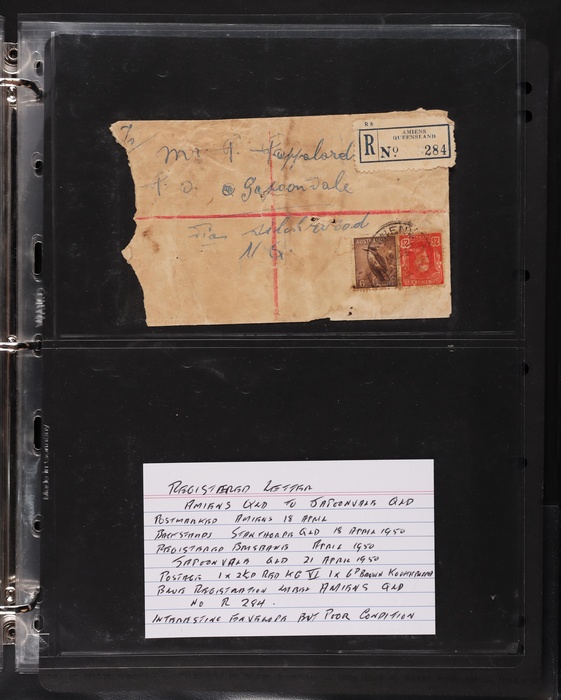 R 6
AMIENS
QUEENSLAND
R No 284
Mr
P. O.
Via
N. Q.
REGISTERED LETTER
AMIENS QLD TO JAPOONVALE QLD
POSTMARKED AMIENS 18 APRIL
BACKSTAMPS STANTHORPE QLD 18 APRIL 1950
REGISTERED BRISBANE APRIL 1950
JAPOONVALE QLD 21 APRIL 1950
POSTAGE 1 X 2½D RED KG VI 1 X 6D BROWN KOOKABURRA
BLUE REGISTRATION LABEL AMIENS QLD
NO R 284.
INTERESTING ENVELOPE BUT POOR CONDITION
Made in Germany